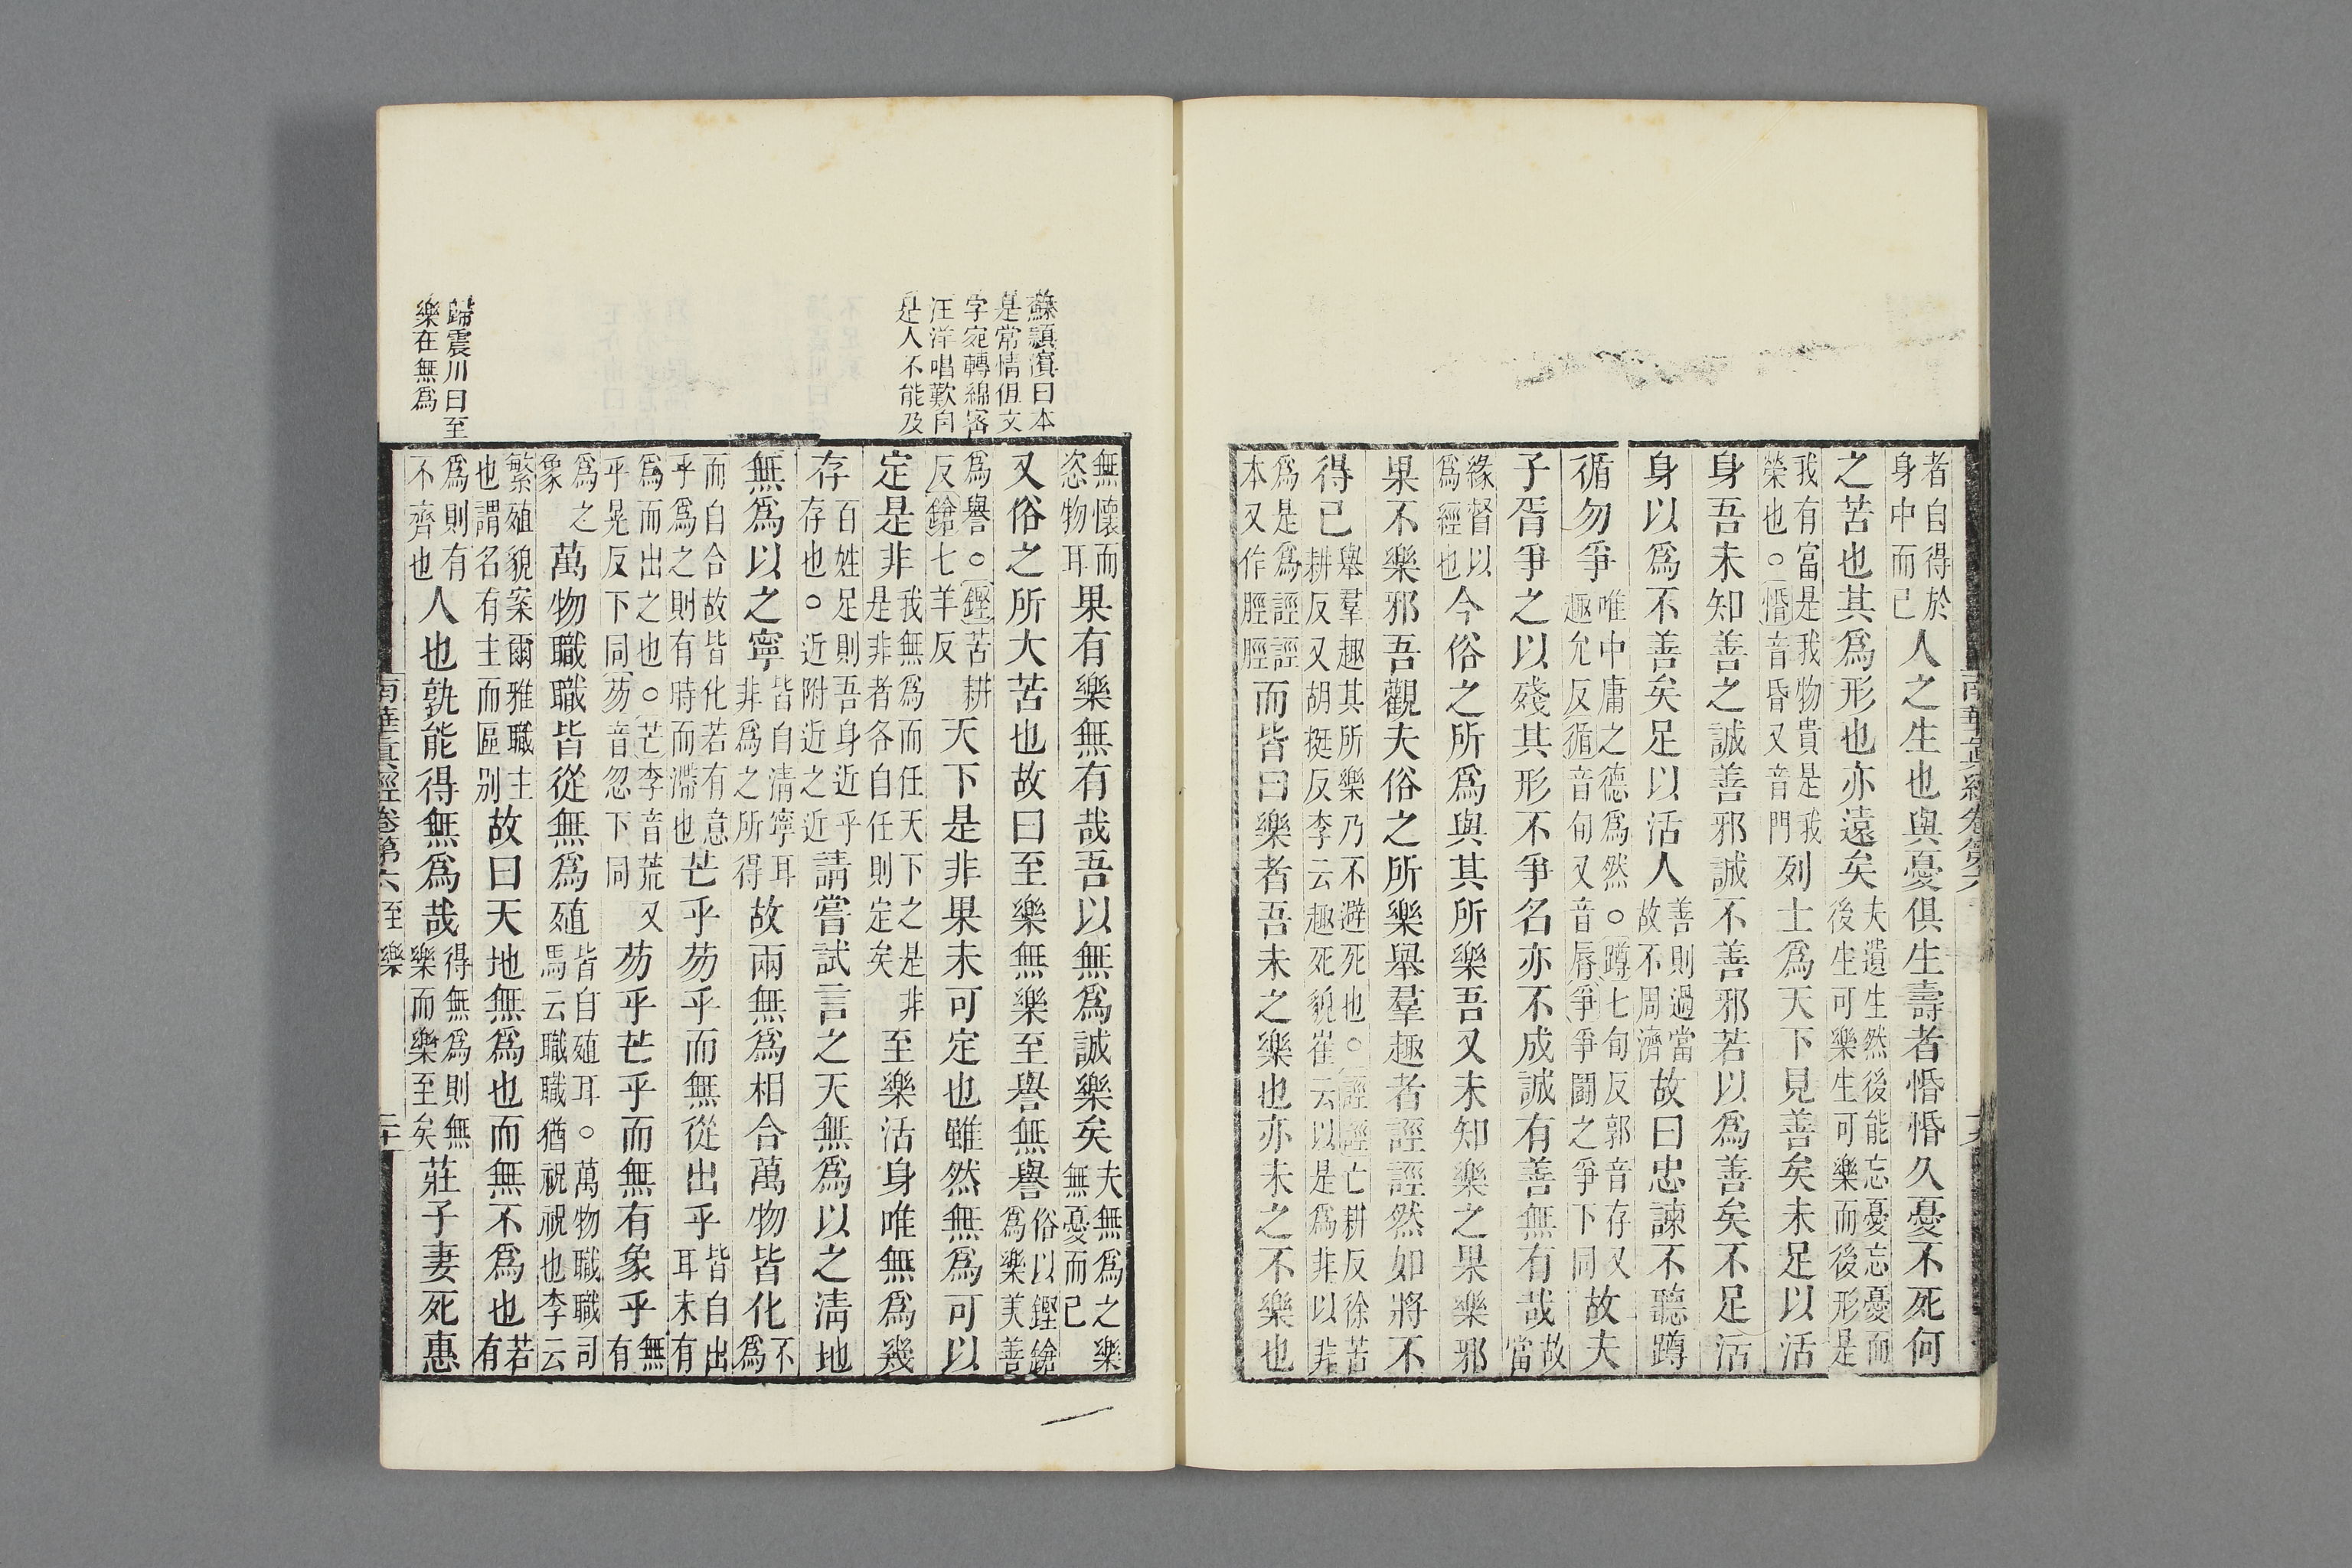 南華眞經卷第六
者自得於身中而已人之生也與憂俱生壽者惛惛久憂不死何
之苦也其爲形也亦遠矣夫遺生然後能忘憂忘憂而後生可樂生可樂而後形是
我有富是我物貴是我榮也○惛音昏又音門列士爲天下見善矣未足以活
身吾未知善之誠善邪誠不善邪若以爲善矣不足活
身以爲不善矣足以活人善則過當故不周濟故曰忠諫不聽蹲
循勿爭唯中庸之德爲然○蹲七旬反郭音存又趣允反循音旬又音脣爭爭鬪之爭下同故夫
子胥爭之以殘其形不爭名亦不成誠有善無有哉故當
緣督以爲經也今俗之所爲與其所樂吾又未知樂之果樂邪
果不樂邪吾觀夫俗之所樂舉羣趣者誙誙然如將不
得已舉羣趣其所樂乃不避死也○誙誙亡耕反徐苦耕反又胡挺反李云趣死貌崔云以是爲非以非
爲是爲誙誙本又作脛脛而皆曰樂者吾未之樂也亦未之不樂也
蘇頴濱曰本
是常情但文
字宛轉綿密
汪洋唱歎自
是人不能及
無懷而恣物耳果有樂無有哉吾以無爲誠樂矣夫無爲之樂無憂而已
又俗之所大苦也故曰至樂無樂至譽無譽俗以鏗鎗爲樂美善
爲譽○鏗苦耕反鎗七羊反天下是非果未可定也雖然無爲可以
定是非我無爲而任天下之是非是非者各自任則定矣至樂活身唯無爲幾
存百姓足則吾身近乎存也○近附近之近請嘗試言之天無爲以之淸地
無爲以之寧皆自淸寧耳非爲之所得故兩無爲相合萬物皆化不爲
而自合故皆化若有意乎爲之則有時而滯也芒乎芴乎而無從出乎皆自出耳未有
爲而出之也○芒李音荒又乎晃反下同芴音忽下同芴乎芒乎而無有象乎無有
爲之象萬物職職皆從無爲殖皆自殖耳○萬物職職司馬云職職猶祝祝也李云
繁殖貌案爾雅職主也謂各有主而區别故曰天地無爲也而無不爲也若有
歸震川曰至
樂在無爲
爲則有不齊也人也孰能得無爲哉得無爲則無樂而樂至矣莊子妻死惠
南華眞經卷第六 至樂